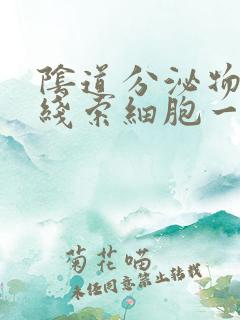 陰道分泌物
綫索細胞一
菊花喵
未经同意禁止转载